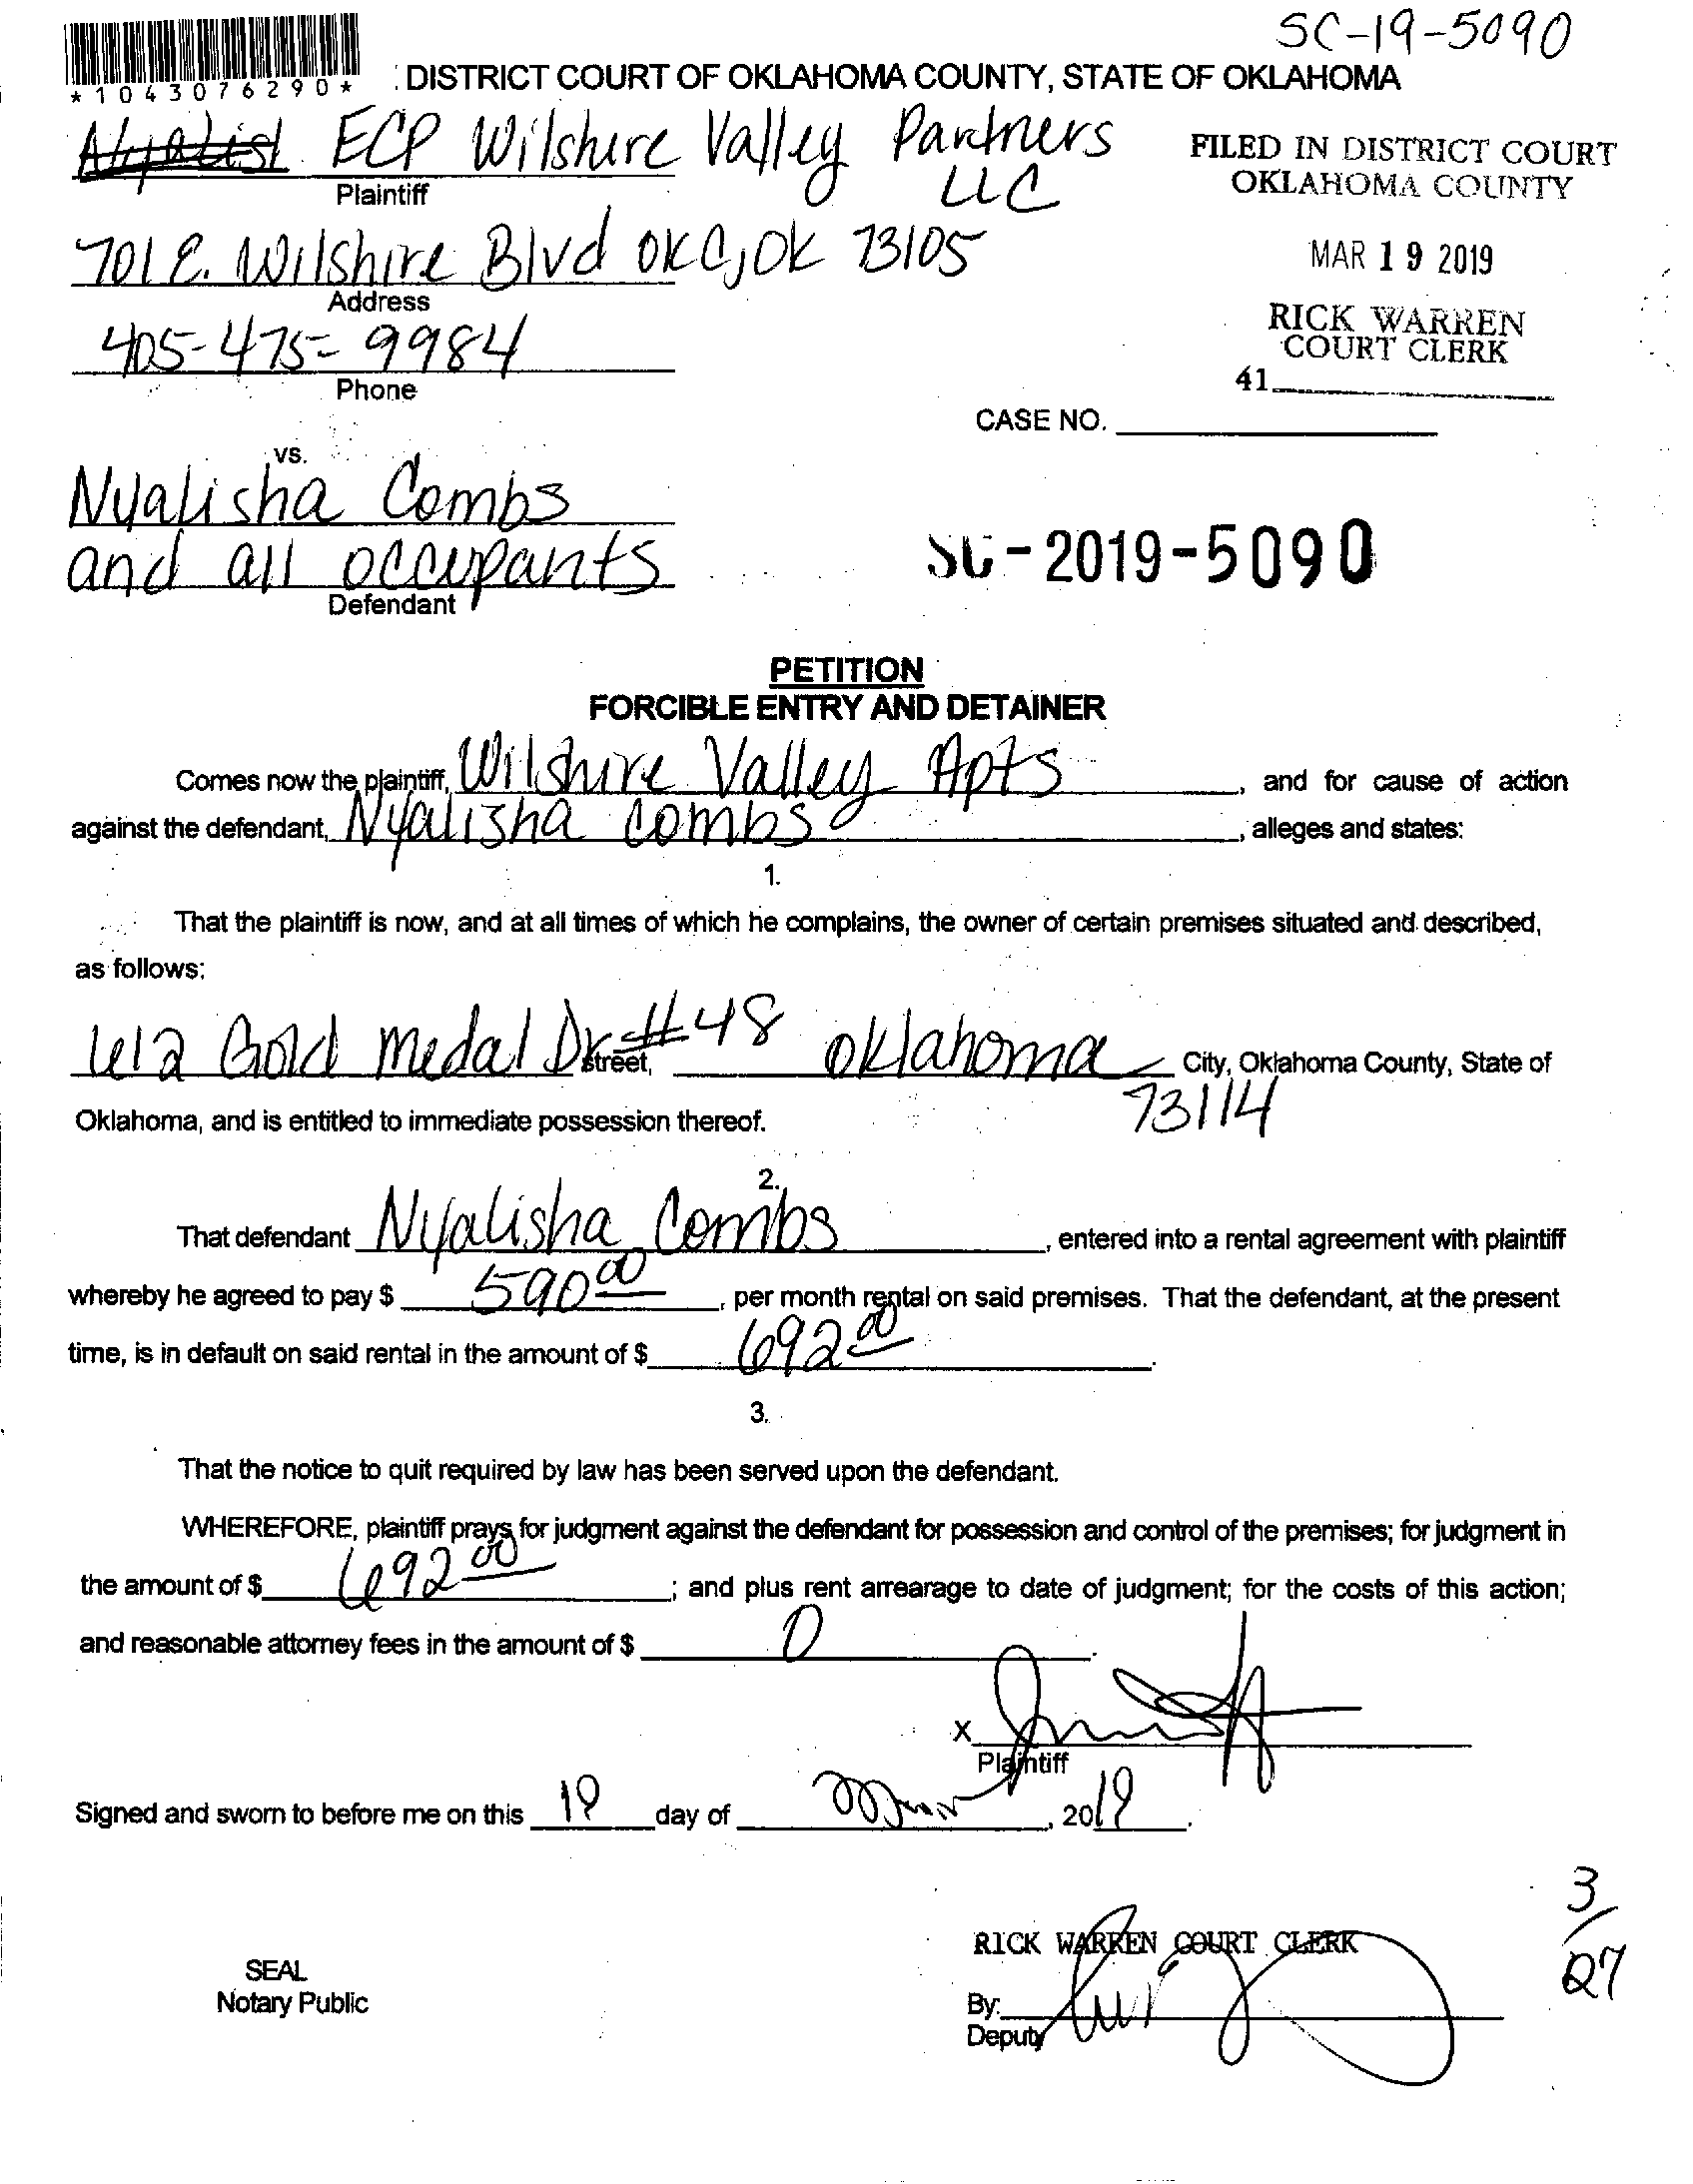 SC-19-5090
*1043076290*
DISTRICT COURT OF OKLAHOMA COUNTY, STATE OF OKLAHOMA
ECP Wilshire Valley Partners
LLC
Plaintiff
FILED IN DISTRICT COURT
OKLAHOMA COUNTY
701 E. Wilshire Blvd OKC, OK 73105
Address
MAR 19 2019
405-475-9984
Phone
RICK WARREN
COURT CLERK
41
CASE NO.
vs.
Nyalisha Combs
and all occupants
Defendant
SC-2019-5090
PETITION
FORCIBLE ENTRY AND DETAINER
Comes now the plaintiff, Wilshire Valley Apts, and for cause of action
against the defendant, Nyalisha Combs, alleges and states:
1.
That the plaintiff is now, and at all times of which he complains, the owner of certain premises situated and described,
as follows:
612 Gold Medal Dr #48 street, Oklahoma City, Oklahoma County, State of
73114
Oklahoma, and is entitled to immediate possession thereof.
2.
That defendant Nyalisha Combs, entered into a rental agreement with plaintiff
whereby he agreed to pay $ 590 00, per month rental on said premises. That the defendant, at the present
time, is in default on said rental in the amount of $ 692 00.
3.
That the notice to quit required by law has been served upon the defendant.
WHEREFORE, plaintiff prays for judgment against the defendant for possession and control of the premises; for judgment in
the amount of $ 692 00; and plus rent arrearage to date of judgment; for the costs of this action;
and reasonable attorney fees in the amount of $ 0.
X
Plaintiff
Signed and sworn to before me on this 19 day of , 2019.
3/27
RICK WARREN COURT CLERK
SEAL
Notary Public
By:
Deputy